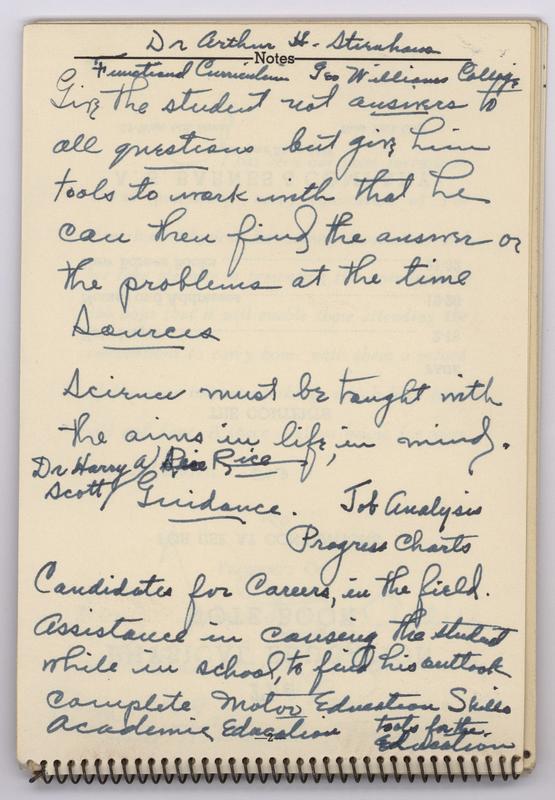 Dr Arthur H. Steinhaus
Notes
Functional Curriculum Geo Williams College
Give the student not answers to
all questions but give him
tools to work with that he
can then find the answer or
the problems at the time
Sources
Science must be taught with
the aims in life, in mind.
Dr Harry A Rice
Scott Guidance. Job Analysis
Progress Charts
Candidates for Careers, in the field.
Assistance in causeng the student
while in school, to find his outlook
Complete Motor Education Skills
Academic Education tools for the
Education
2